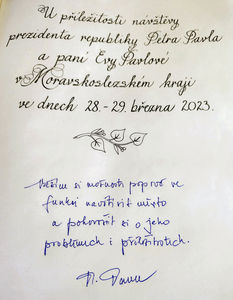 U příležitosti návštěvy
prezidenta republiky Petra Pavla
a paní Evy Pavlové
v Moravskoslezském kraji
ve dnech 28.-29. března 2023.
Vážím si možnosti poprvé ve
funkci navštívit místo
a pohovořit si o jeho
problémech i příležitostech.
P. Pavel